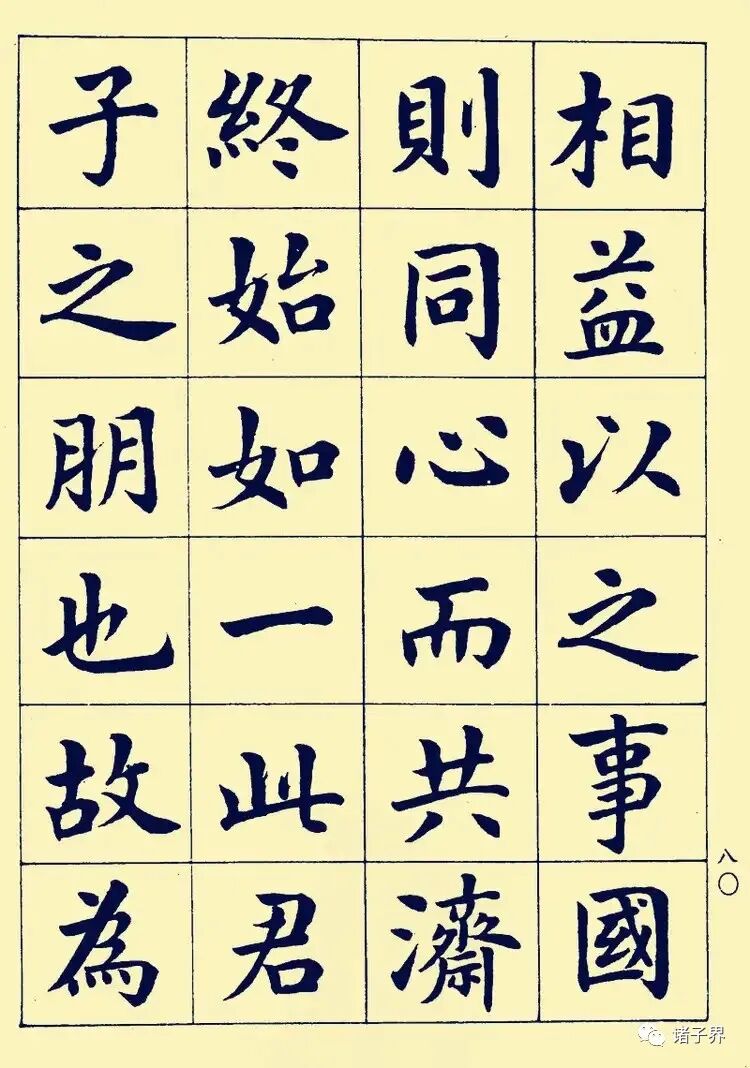 相益以之事國
則同心而共濟
終始如一此君
子之朋也故為
八〇
诸子界